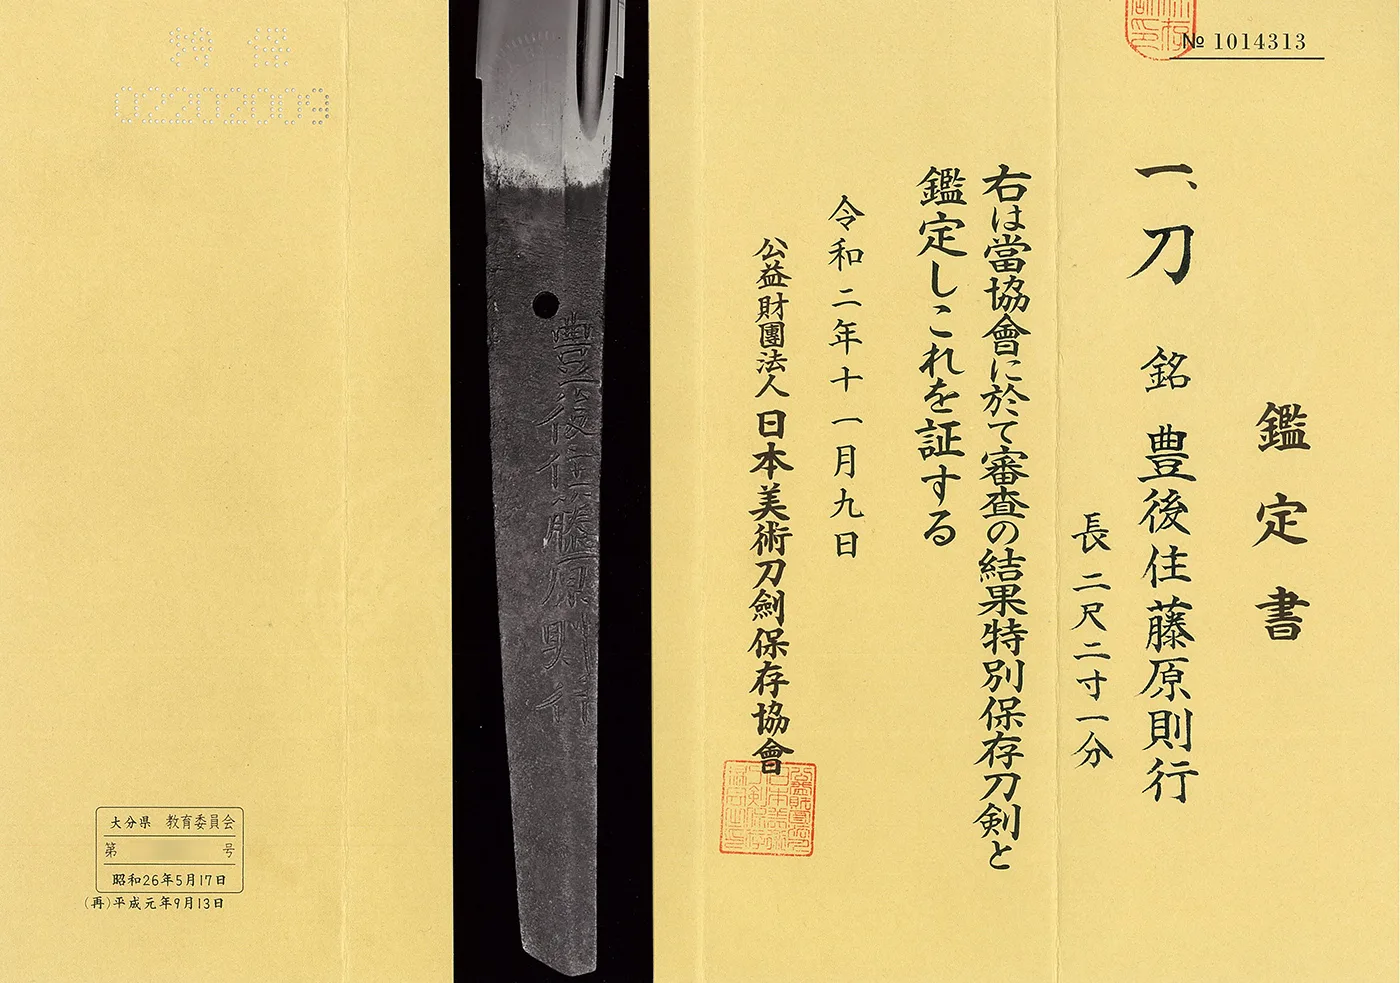 № 1014313
鑑定書
一、刀 銘 豊後住藤原則行
長 二尺二寸一分
右は當協會に於て審査の結果特別保存刀剣と
鑑定しこれを証する
令和二年十一月九日
公益財團法人 日本美術刀劍保存協會
豊後住藤原則行
02202008
大分県 教育委員会
第 号
昭和26年5月17日
(再)平成元年9月13日